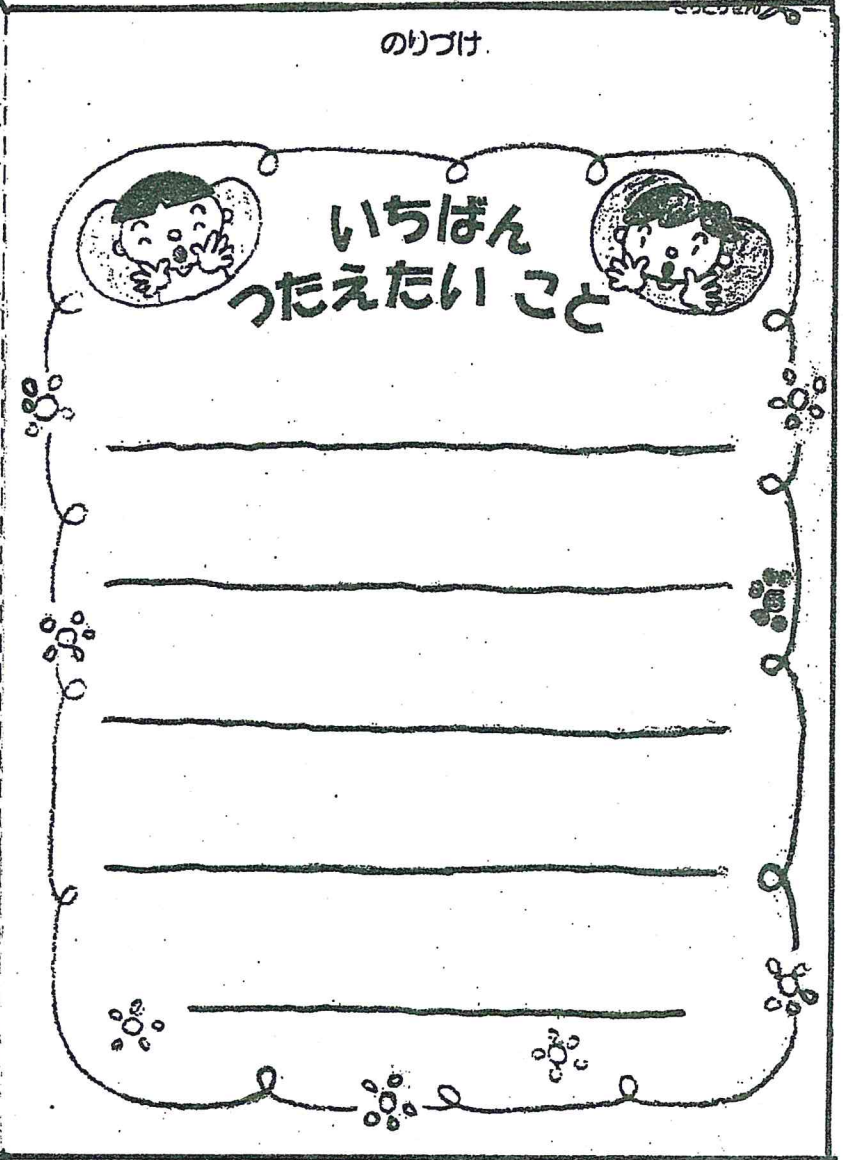 のりづけ
いちばん
つたえたい こと